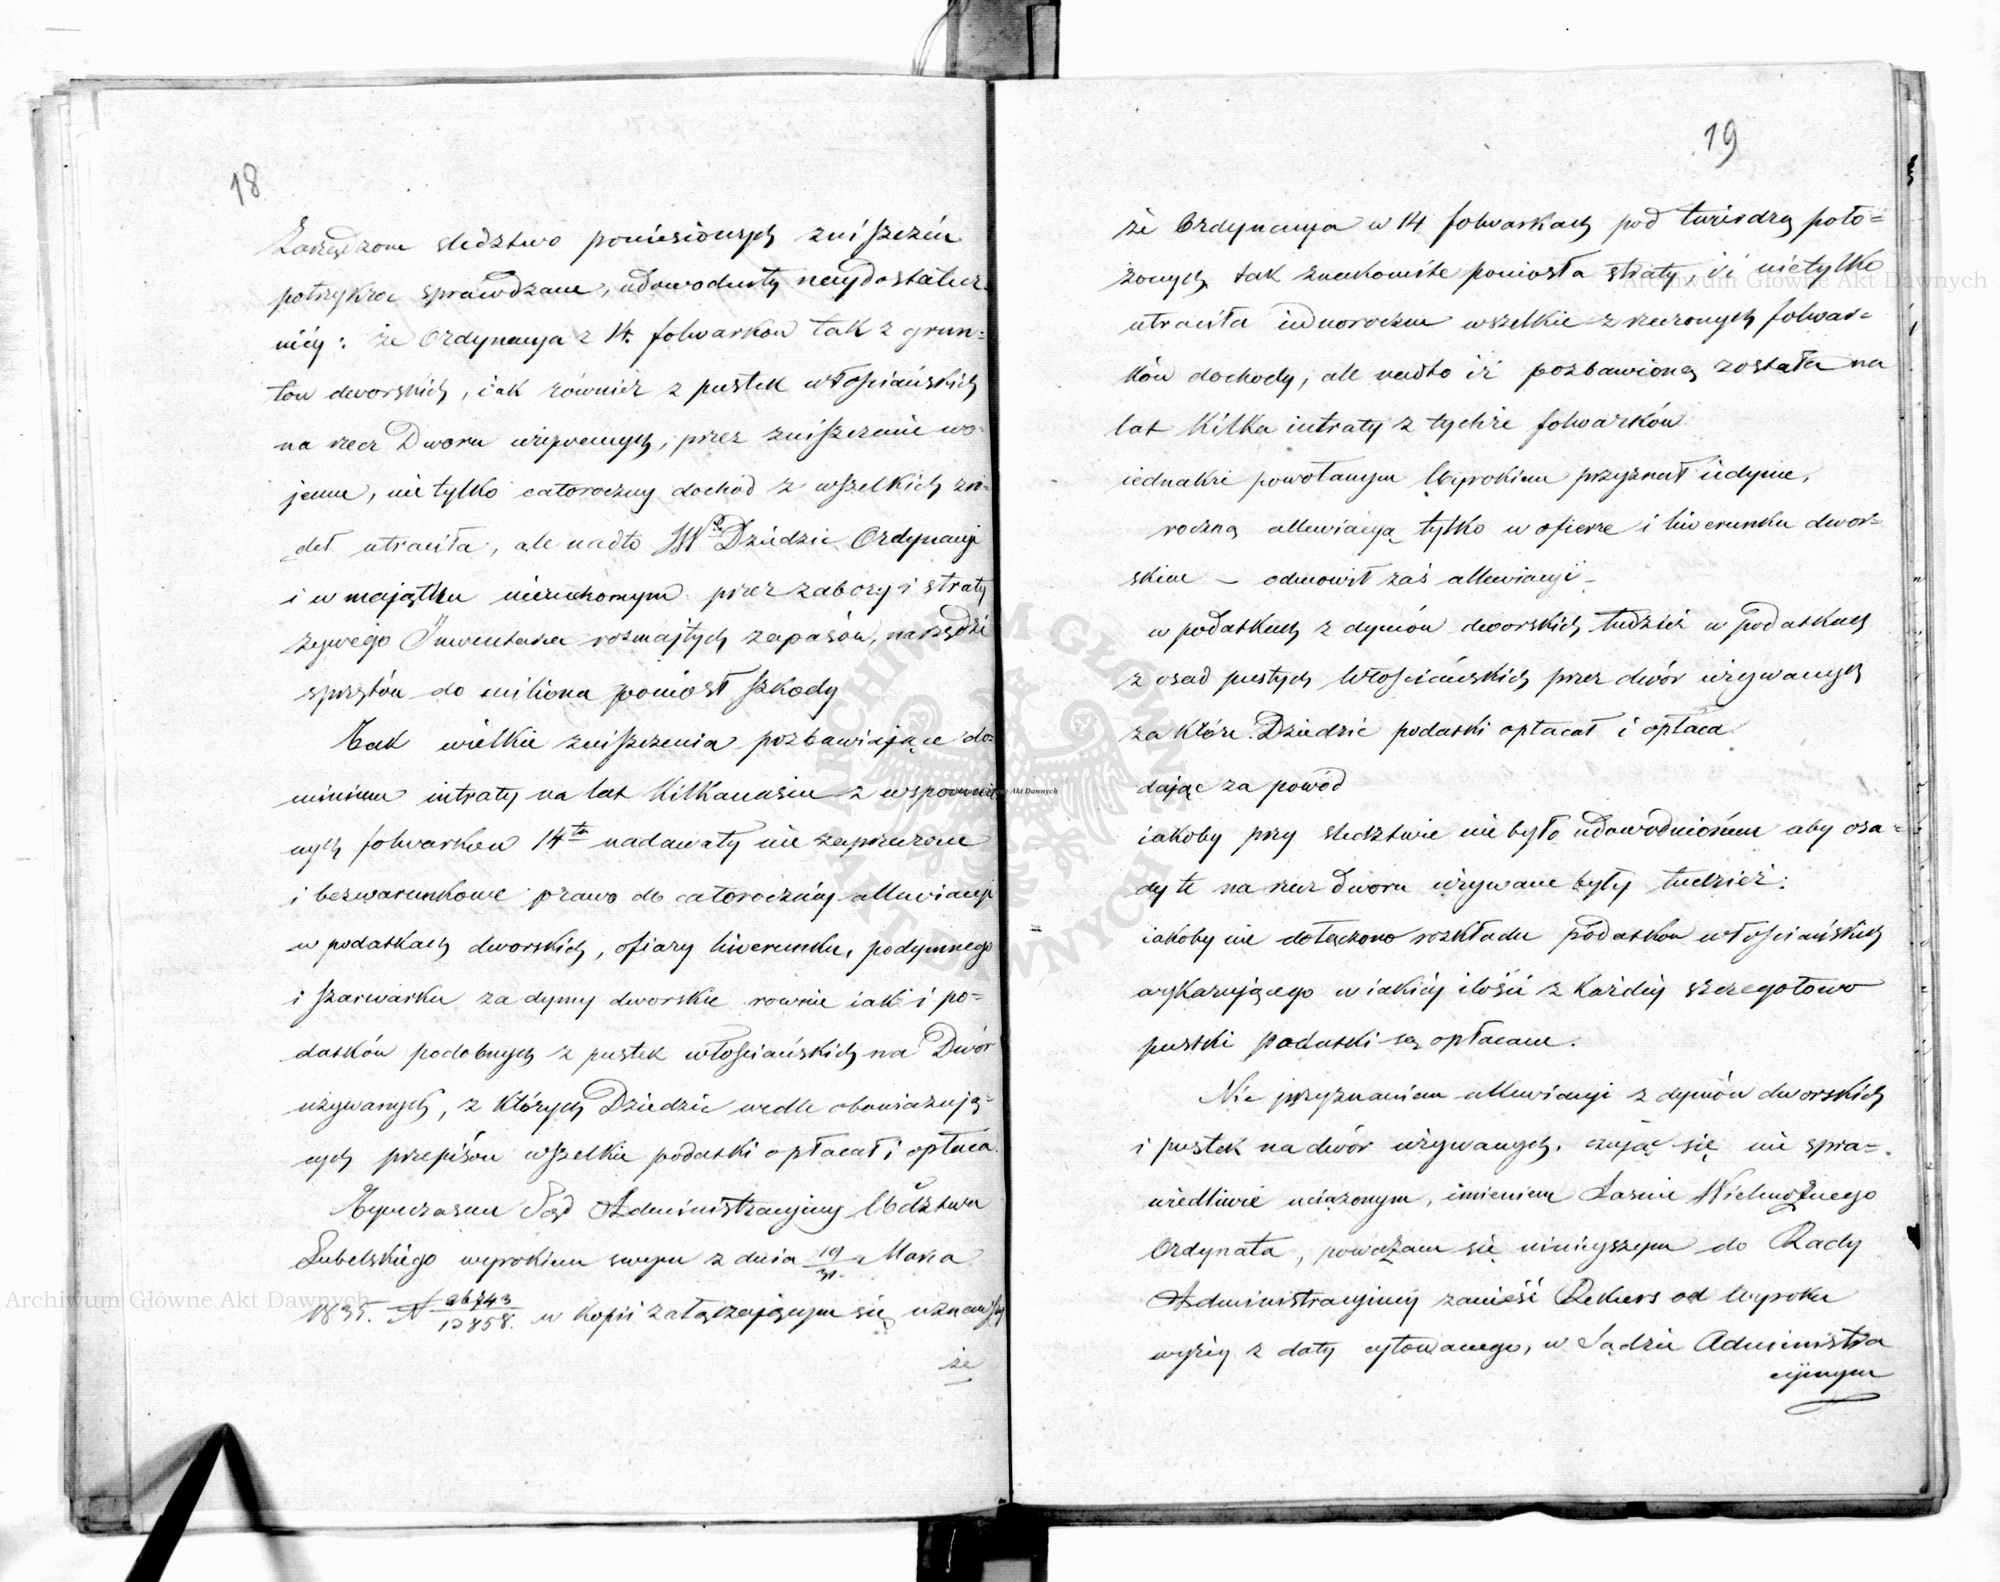 18
Zarządzone sledztwo poniesionych zniszczeń
potrzykroc sprawdzane, udowodniły naydostatecz-
niéy: że Ordynacya z 14. folwarkow tak z grun-
tow dworskich, iak również z pustek włościańskich
na rzecz Dworu używanych, przez zniszczenie wo-
jenne, nie tylko całoroczny dochód z wszelkich zró-
deł utraciła, ale nadto JW Dziedzic Ordynacyi
i w majątku nieruchomym przez zabory i straty
żywego Inwentarza rozmajtych zapasów, narzędzi
sprzętów do miliona poniosł szkody
Tak wielkie zniszczenia pozbawiające do-
minium intraty na lat kilkanaście z wspomnio
nych folwarkow 14tu nadawały nie zaprzeczone
i bezwarunkowe prawo do całoroczney allewiacyi
w podatkach dworskich, ofiary liwerunku, podymnego
i szarwarku za dymy dworskie rownie iak i po-
datków podobnych z pustek włościańskich na Dwór
używanych, z których Dziedzic wedle obowiazują-
cych przepisów wszelkie podatki opłacał i opłaca.
Tymczasem Sąd Administracyiny Wdztwa
Lubelskiego wyrokiem swym z dnia 19/31. Marca
1835. N 26743/12858. w kopii załączającym się, uznawszy
że
19
że Ordynacya w 14 folwarkach pod twierdzą poło-
żonych tak znakomite poniosła straty, iż nietylko
utraciła iednoroczne wszelkie z rzeczonych folwar-
ków dochody, ale nadto iż pozbawioną została na
lat kilka intraty z tychże folwarków
iednakże powołanym Wyrokiem przyznał iedynie,
roczną allewiacyą tylko w ofierze i liwerunku dwor-
skim – odmowił zaś allewiacyi –
w podatkach z dymów dworskich tudzież w podatkach
z osad pustych Włościańskich przez dwór używanych
za które Dziedzic podatki opłacał i opłaca
dając za powód
iakoby przy sledztwie nie było udowodnionem aby osa-
dy te na rzecz Dworu używane były tudzież:
iakoby nie dołączono rozkładu podatkow włościańskich
wykazującego w iakiéy ilości z każdéy szczegołowo
pustki podatki są opłacane.
Nie przyznaniem allewiacyi z dymów dworskich
i pustek na dwór używanych, czując się nie spra-
wiedliwie uciążonym, imieniem Jaśnie Wielmożnego
Ordynata, poważam się ninieyszym do Rady
Administracyiney zanieść Rekurs od Wyroku
wyżey z daty cytowanego, w Sądzie Administra
cyjnym
Archiwum Główne Akt Dawnych
Archiwum Główne Akt Dawnych
ARCHIWUM GŁÓWNE AKT DAWNYCH